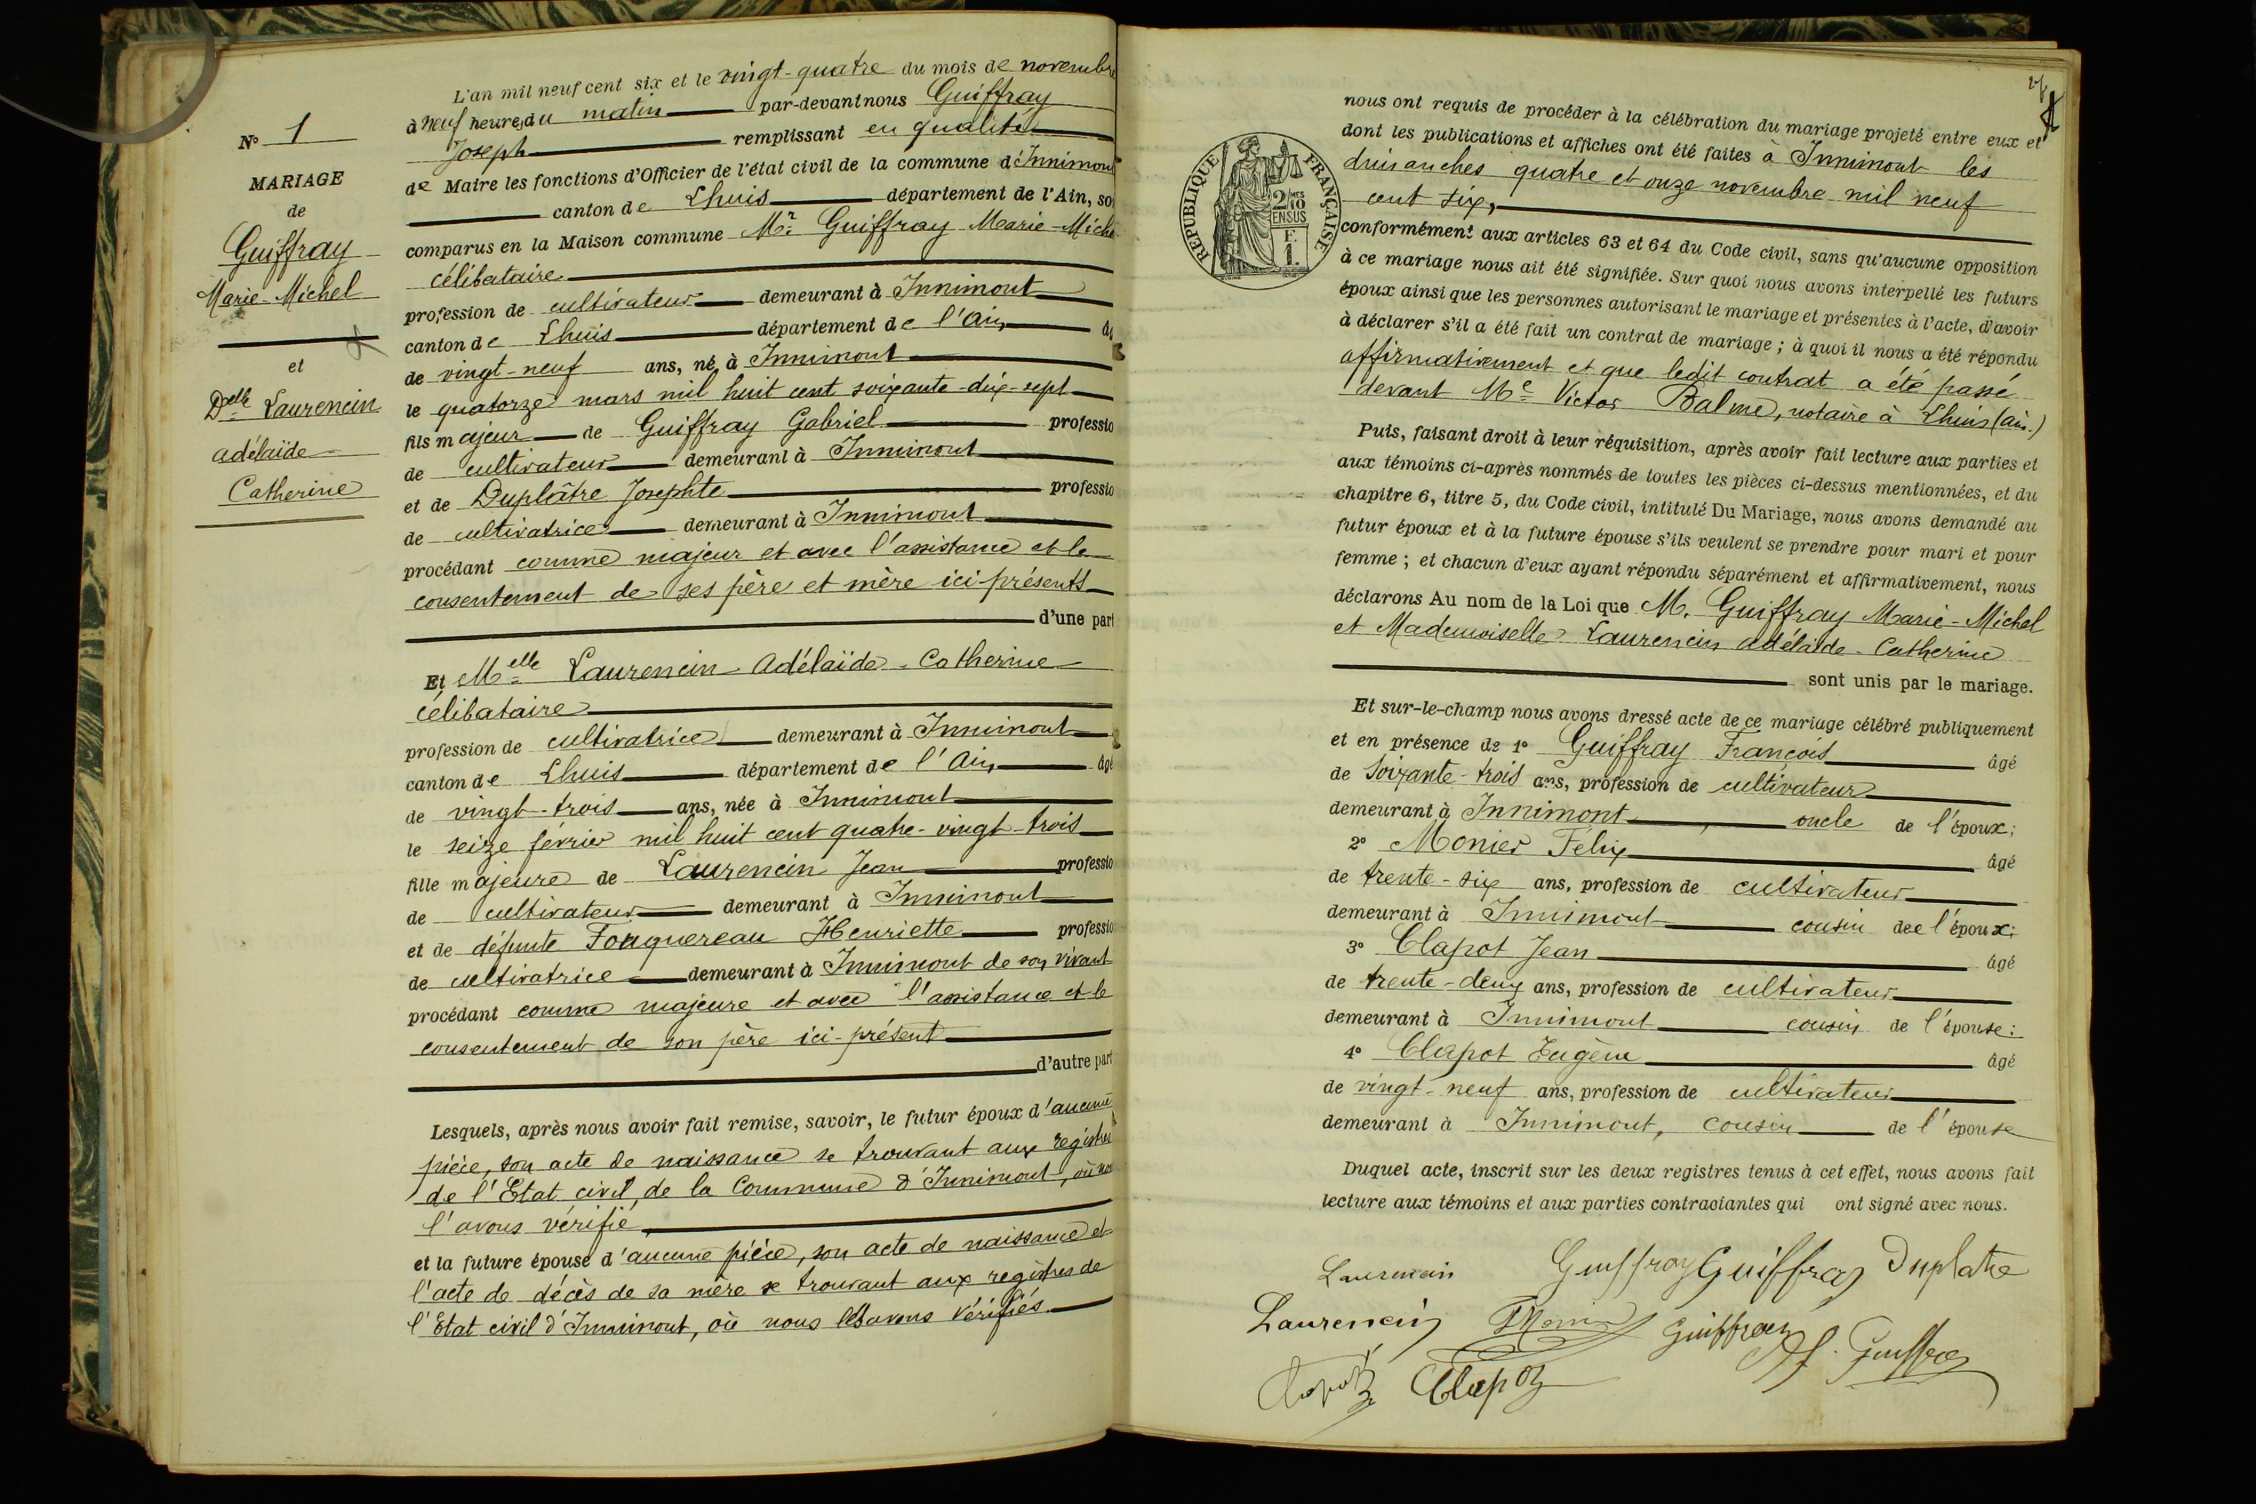 L'an mil neuf cent six et le vingt-quatre du mois de novembre
à neuf heures du matin par-devant nous Guiffray
Joseph remplissant en qualité
de Maire les fonctions d'Officier de l'état civil de la commune d'Innimont
canton de Lhuis département de l'Ain, so
comparus en la Maison commune Mr Guiffray Marie-Miche
célibataire
profession de cultivateur demeurant à Innimont
canton de Lhuis département de l'Ain
de vingt-neuf ans, né à Innimont
le quatorze mars mil huit cent soixante-dix-sept
fils majeur de Guiffray Gabriel professio
de cultivateur demeurant à Innimont
et de Duplâtre Josephte professio
de cultivatrice demeurant à Innimont
procédant comme majeur et avec l'assistance et le
consentement de ses père et mère ici-présents
d'une part
Et Melle Laurencin Adélaïde-Catherine
célibataire
profession de cultivatrice demeurant à Innimont
canton de Lhuis département de l'Ain âgé
de vingt-trois ans, née à Innimont
le seize février mil huit cent quatre-vingt-trois
fille majeure de Laurencin Jean professio
de cultivateur demeurant à Innimont
et de défunte Fouquereau Henriette professio
de cultivatrice demeurant à Innimont de son vivant
procédant comme majeure et avec l'assistance et le
consentement de son père ici-présent
d'autre part
Lesquels, après nous avoir fait remise, savoir, le futur époux d'aucune
pièce, son acte de naissance se trouvant aux registres
de l'Etat civil, de la Commune d'Innimont, où nous
l'avons vérifié,
et la future épouse d'aucune pièce, son acte de naissance et
l'acte de décès de sa mère se trouvant aux registres de
l'Etat civil d'Innimont, où nous les avons vérifiés.
No 1
MARIAGE
de
Guiffray
Marie-Michel
et
Delle Laurencin
Adélaïde
Catherine
REPUBLIQUE FRANÇAISE
2/10MES
EN SUS
F.
1.
nous ont requis de procéder à la célébration du mariage projeté entre eux et
dont les publications et affiches ont été faites à Innimont les
dimanches quatre et onze novembre mil neuf
cent six,
conformément aux articles 63 et 64 du Code civil, sans qu'aucune opposition
à ce mariage nous ait été signifiée. Sur quoi nous avons interpellé les futurs
époux ainsi que les personnes autorisant le mariage et présentes à l'acte, d'avoir
à déclarer s'il a été fait un contrat de mariage ; à quoi il nous a été répondu
affirmativement et que ledit contrat a été passé
devant Me Victor Balme, notaire à Lhuis (Ain.)
Puis, faisant droit à leur réquisition, après avoir fait lecture aux parties et
aux témoins ci-après nommés de toutes les pièces ci-dessus mentionnées, et du
chapitre 6, titre 5, du Code civil, intitulé Du Mariage, nous avons demandé au
futur époux et à la future épouse s'ils veulent se prendre pour mari et pour
femme ; et chacun d'eux ayant répondu séparément et affirmativement, nous
déclarons Au nom de la Loi que M. Guiffray Marie-Michel
et Mademoiselle Laurencin Adélaïde-Catherine
sont unis par le mariage.
Et sur-le-champ nous avons dressé acte de ce mariage célébré publiquement
et en présence de 1° Guiffray François âgé
de soixante-trois ans, profession de cultivateur
demeurant à Innimont, oncle de l'époux;
2° Monier Félix âgé
de trente-six ans, profession de cultivateur
demeurant à Innimont cousin dee l'époux;
3° Clapot Jean âgé
de trente-deux ans, profession de cultivateur
demeurant à Innimont cousin de l'épouse:
4° Clapot Eugène âgé
de vingt-neuf ans, profession de cultivateur
demeurant à Innimont, cousin de l'épouse
Duquel acte, inscrit sur les deux registres tenus à cet effet, nous avons fait
lecture aux témoins et aux parties contractantes qui ont signé avec nous.
Laurencin Guiffray Guiffray Duplatre
Laurencin Guiffray Guiffray
Clapot